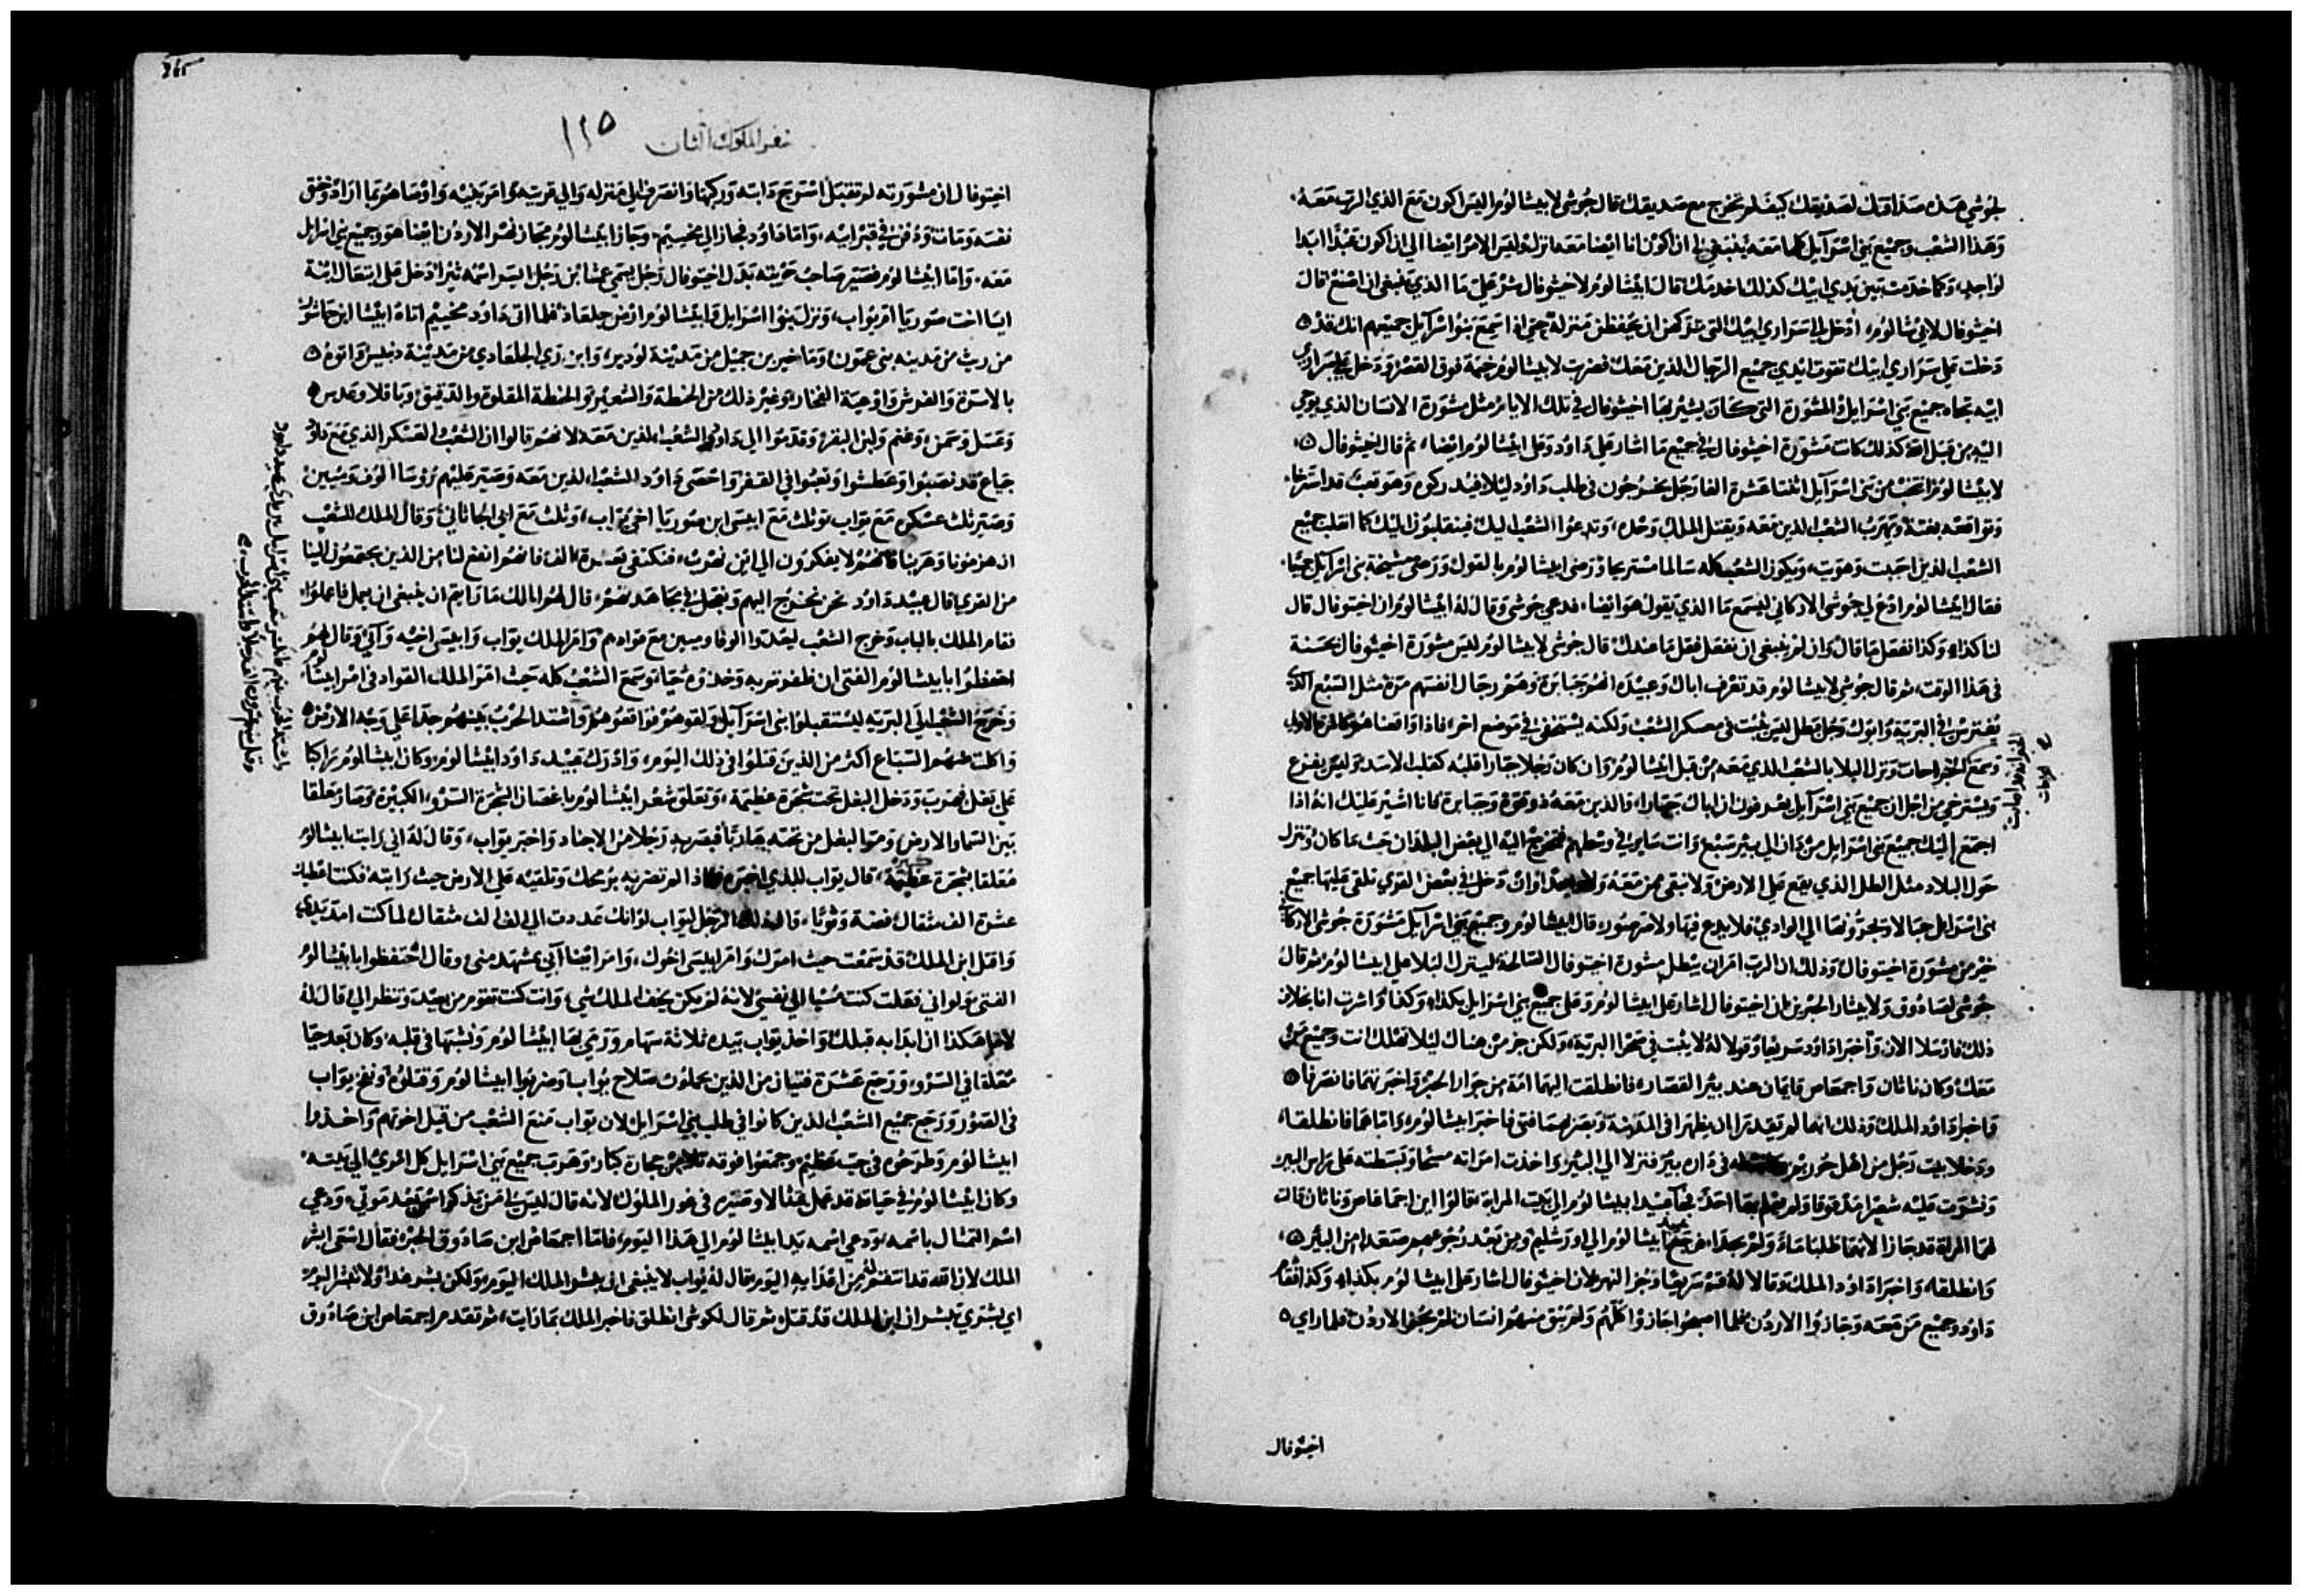 لجوشي هذه صداقتك لصديقك كيف لم تخرج مع صديقك قال جوشي لابيشالوم اليس اكون مع الذي الرب معه
وهذا الشعب وجميع بني اسرآيل كلها معه ينبغي لي ان اكون انا ايضا معه انزل وليس الامر ايضا الي ان اكون عبدا ابدا
لواحد وكما خدمت بين يدي ابيك كذلك اخدمك قال ابيشالوم لاخيثوفال شر علي ما الذي ينبغي ان اصنع قال
اخيثوفال لابيشالوم ادخل الي سراري ابيك التي تركهن ان يحفظن منزله حتي اذا سمع بنوا اسرآيل جميعهم انك قد
دخلت علي سراري ابيك تقوت ايدي جميع الرجال الذين معك فضربت لابيشالوم خيمة فوق القصر ودخل علي سراري
ابيه تجاه جميع بني اسرايل والمشورة التي كان يشير بها اخيثوفال في تلك الايام مثل مشورة الانسان الذي يوحي
اليه من قبل الله كذلك كانت مشورة اخيثوفال في جميع ما اشار علي داود وعلي ابيشالوم ايضا ثم قال اخيثوفال
لابيشالوم انتخب من بني اسرآيل اثنتا عشرة الفا رجل يخرجون في طلب داود ليلا فيدركوه وهو تعب قد استرخا
وتواقعه بغتة ويهرب الشعب الذين معه ويقتل الملك وحده وتدعوا الشعب اليك فينقلبون اليك كما انقلب جميع
الشعب الذين احببت وهويت ويكون الشعب كله سالما مستريحا ورضي ابيشالوم بالقول ورضي مشيخة بني اسرآيل جميعا
فقال ابيشالوم ادع لي جوشي الاركاني ليسمع ما الذي يقول هو ايضا فدعي جوشي وقال له ابيشالوم ان اخيتوفال قال
لنا كذا وكذا نفعل ما قال وان لم ينبغي ان نفعل فقل ما عندك قال جوشي لابيشالوم ليس مشورة اخيثوفال بحسنة
في هذا الوقت ثم قال جوشي لابيشالوم قد تعرف اباك وعبيده انهم جبابرة وهم رجال انفسهم مرة مثل السبع الذي
يفترس في البرية وابوك رجل بطل ليس يثبت في معسكر الشعب ولكنه يستخفي في موضع اخر فاذا واقعناهم كالمرة الاولي
وسمع الخبر احاب ونزل البلا بالشعب الذي معه من قبل ابيشالوم وان كان رجلا جبارا قلبه كقلب الاسد وليس يفزع
ويسترخي من اجل ان جميع بني اسرآيل يعرفون ان اباك جبارا والذين معه ذو قوة وجبابرة كانا اشير عليك انه اذا
اجتمع اليك جميع بني اسرايل من دان الي بير سبع وانت ساير في وسطهم فتخرج اليه الي بعض البلدان حيث ما كان وننزل
حول البلاد مثل الطل الذي يقع علي الارض ولا يبقي ممن معه ولا واحدا وان دخل في بعض القري نلقي عليها جميع
بني اسرايل حبالا ويجرونها الي الوادي فلا يدع فيها ولا صرصور قال ابيشالوم وجميع بني اسرآيل مشورة جوشي الاركاني
خير من مشورة اخيتوفال وذلك ان الرب امر ان يبطل مشورة اخيتوفال الصالحة لينزل البلا علي ابيشالوم ثم قال
جوشي لصادوق ولابيثار الحبرين ان اخيتوفال اشار علي ابيشالوم وعلي جميع بني اسرايل بكذا وكذا واشرت انا بخلاف
ذلك فارسلا الان واخبرا داود سريعا وقولا له لا يبت في صحرا البرية ولكن جز من هناك ليلا تهلك انت وجميع من
معك وكان ناثان واجمعاص قايمان عند بير القصار فانطلقت اليهما امة من جوار الحبر واخبرتهما فانصرفا
واخبرا داود الملك وذلك انهما لم يقدرا ان يظهرا في المدينة وبصر بهما فتي فاخبر ابيشالوم واما هما فانطلقا
ودخلا بيت رجل من اهل حوريم له في داره بير فنزلا الي البير واخذت امراته مسحا وبسطته علي راس البير
ونشرت عليه شعيرا مدقوقا ولم يعلم بهما احد فجا عبيد ابيشالوم الي بيت المراة فقالوا اين اجمعاص وناثان قالت
لهم المراة قد جازا لانهما طلبا ماء ولم يجدا فرجع عبيد ابيشالوم الي اورشليم ومن بعد رجوعهم صعدا من البير
وانطلقا واخبرا داود الملك وقالا له قم سريعا وجز النهر لان اخيثوفال اشار علي ابيشالوم بكذا وكذا فقام
داود وجميع من معه وجازوا الاردن فلما اصبحوا جازوا كلهم ولم يبق منهم انسان لم يجز الاردن فلما راي
اخيتوفال
سفر الملوك الثان
١١٥
265
اخيتوفال ان مشورته لم تقبل اسرج دابته وركبها وانصرف الي منزله والي قريته وامر بنيه واوصاهم بما اراد وخنق
نفسه ومات ودفن في قبر ابيه واما داود فجاز الي مخنيم وجاز ابيشالوم نحو الاردن ايضا هو وجميع بني اسرايل
معه واما ابيشالوم فصير صاحب حربته بدل اخيتوفال رجل يسمي عمشا ابن رجل اسمه يثرا دخل علي ابيغال ابنة
ايسا اخت صوريا ام يواب ونزل بنوا اسرايل وابيشالوم ارض جلعاد فلما اتي داود مخنيم اتاه ابيشا ابن حاشو
من ربث من مدينه بني عمون وماخير بن جميل من مدينة لودير وابن زي الجلعادي من مدينة دبليس واتوه
بالاسرة والفرش واوعية الفخار وغير ذلك من الحنطة والشعير والحنطة المقلوة والدقيق وباقلا وعدس
وعسل وسمن وغنم ولبن البقر وقدموا الي داود والشعب الذين معه لانهم قالوا ان الشعب والعسكر الذي مع داود
جياع قد نصبوا وعطشوا وتعبوا في القفر واحصي داود الشعب الذين معه وصير عليهم روسا الوف وميين
وصير ثلث عسكره مع يواب وثلث مع ابيسي ابن صوريا اخي يواب وثلث مع اتي الجاثاني وقال الملك للشعب
من القري قال عبيد داود نحن نخرج اليهم ونعجل في مجاهدتهم قال لهم الملك ما رايتم ان ينبغي ان يعمل فاعملوا
فقام الملك بالباب وخرج الشعب ليعدوا الوفا وميين مع قوادهم وامر الملك يواب وابيسي اخيه واتي وقال لهم
احتفظوا بابيشالوم الفتي ان ظفرتم به وخذوه حيا وسمع الشعب كله حيث امر الملك القواد في امر ابيشالوم
وخرج الشعب الي البرية ليستقبلوا بني اسرآيل فلقوهم فواقعوهم واشتد الحرب بينهم جدا علي وجه الارض
واكلت منهم السباع اكثر من الذين قتلوا في ذلك اليوم وادرك عبيد داود ابيشالوم وكان ابيشالوم راكبا
علي بغل فهرب ودخل البغل تحت شجرة عظيمة وتعلق شعر ابيشالوم باغصان الشجرة السرو الكبيرة وصار معلقا
بين السما والارض ومر البغل من تحته هاربا فبصر به رجلا من الاجناد واخبر يواب وقال له اني رايت ابيشالوم
معلقا بشجرة كبيرة قال يواب للذي اخبره فاذا لم تضربه برمحك وتلقيه علي الارض حيث رايته فكنت اعطيك
عشرة الف مثقال فضة وثوبا قال ذلك الرجل ليواب لو انك عددت الي الف الف مثقال لما كنت امد يدي
واقتل ابن الملك قد سمعت حيث امرك وامر ابيسي اخوك وامر ايضا آتي بمشهد مني وقال احتفظوا بابيشالوم
الفتي ولو اني فعلت كنت مسيا الي نفسي لانه لم يكن يخف الملك شي وانت كنت تقوم من بعيد وتنظر الي قال له
هكذا انا ابدا به قبلك واخذ يواب بيده ثلاثة سهام ورمي بها ابيشالوم ونشبها في قلبه وكان بعد حيا
معلقا في السرو ورجع عشرة فتيان من الذين يحملون سلاح يواب وضربوا ابيشالوم وقتلوه ونفخ يواب
في الصور ورجع جميع الشعب الذين كانوا في طلب بني اسرايل لان يواب منع الشعب من قبل اخوتهم واخذوا
ابيشالوم وطرحوه في جب عظيم وجمعوا فوقه تلا من حجارة كبار وهرب جميع بني اسرايل كل امري الي بيته
وكان ابيشالوم في حياته قد عمل تمثالا وصيره في غور الملوك لانه قال ليس لي من يذكر اسمي بعد موتي ودعي
اسم التمثال باسمه ودعي اسمه يد ابيشالوم الي هذا اليوم فلما اجمعاص ابن صادوق الحبر فقال اسعي ابشر
الملك لان الله قد انتقم من اعدايه اليوم قال له يواب لا ينبغي ان يبشر الملك اليوم ولكن بشر غدا ولا تبشر اليوم
اي بشري تبشر ان ابن الملك قد قتل ثم قال لكوشي انطلق فاخبر الملك بما رايت ثم تقدم اجمعاص ابن صادوق